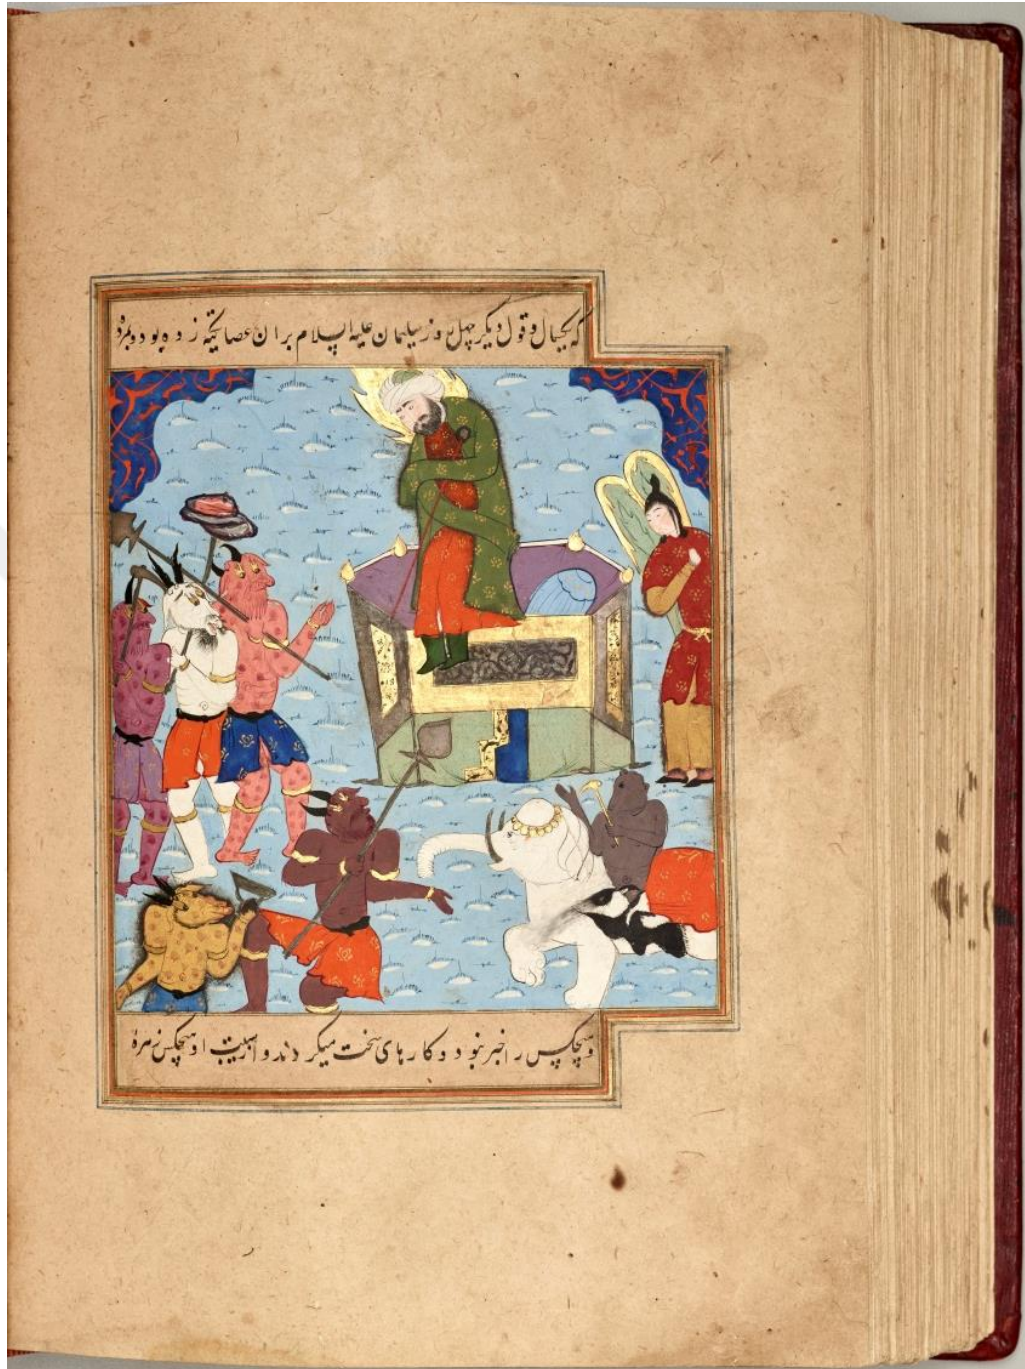 که یکسال و قول دیگر چهل روز سلیمان علیه السلام بران عصا تکیه زده بود و بمرده
و هیچکس را خبر نبود و کارهای سخت میکردند و از هیبت او هیچکس زهره